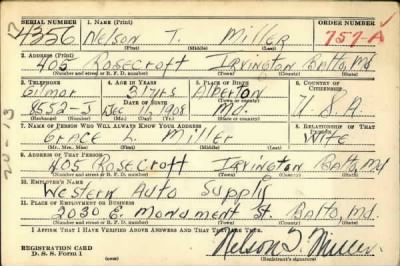 SERIAL NUMBER 1. NAME (Print) ORDER NUMBER
4356 Nelson T. Miller 757-A
(First) (Middle) (Last)
2. ADDRESS (Print)
405 Rosecroft Irvington Balto, Md
(Number and street or R. F. D. number) (Town) (County) (State)
3. TELEPHONE 4. AGE IN YEARS 5. PLACE OF BIRTH 6. COUNTRY OF CITIZENSHIP
Gilmor 31 yrs Alberton
DATE OF BIRTH (Town or county)
8552-J Dec 11, 1908 Md. U.S.A.
(Exchange) (Number) (Mo.) (Day) (Yr.) (State or country)
7. NAME OF PERSON WHO WILL ALWAYS KNOW YOUR ADDRESS 8. RELATIONSHIP OF THAT PERSON
Grace L. Miller Wife
(Mr., Mrs., Miss) (First) (Middle) (Last)
9. ADDRESS OF THAT PERSON
405 Rosecroft Irvington Balto, Md
(Number and street or R. F. D. number) (Town) (County) (State)
10. EMPLOYER'S NAME
Western Auto Supply
11. PLACE OF EMPLOYMENT OR BUSINESS
2030 E. Monument St. Balto, Md.
(Number and street or R. F. D. number) (Town) (County) (State)
I AFFIRM THAT I HAVE VERIFIED ABOVE ANSWERS AND THAT THEY ARE TRUE.
REGISTRATION CARD
D. S. S. Form 1
Nelson T. Miller
(Registrant's signature)